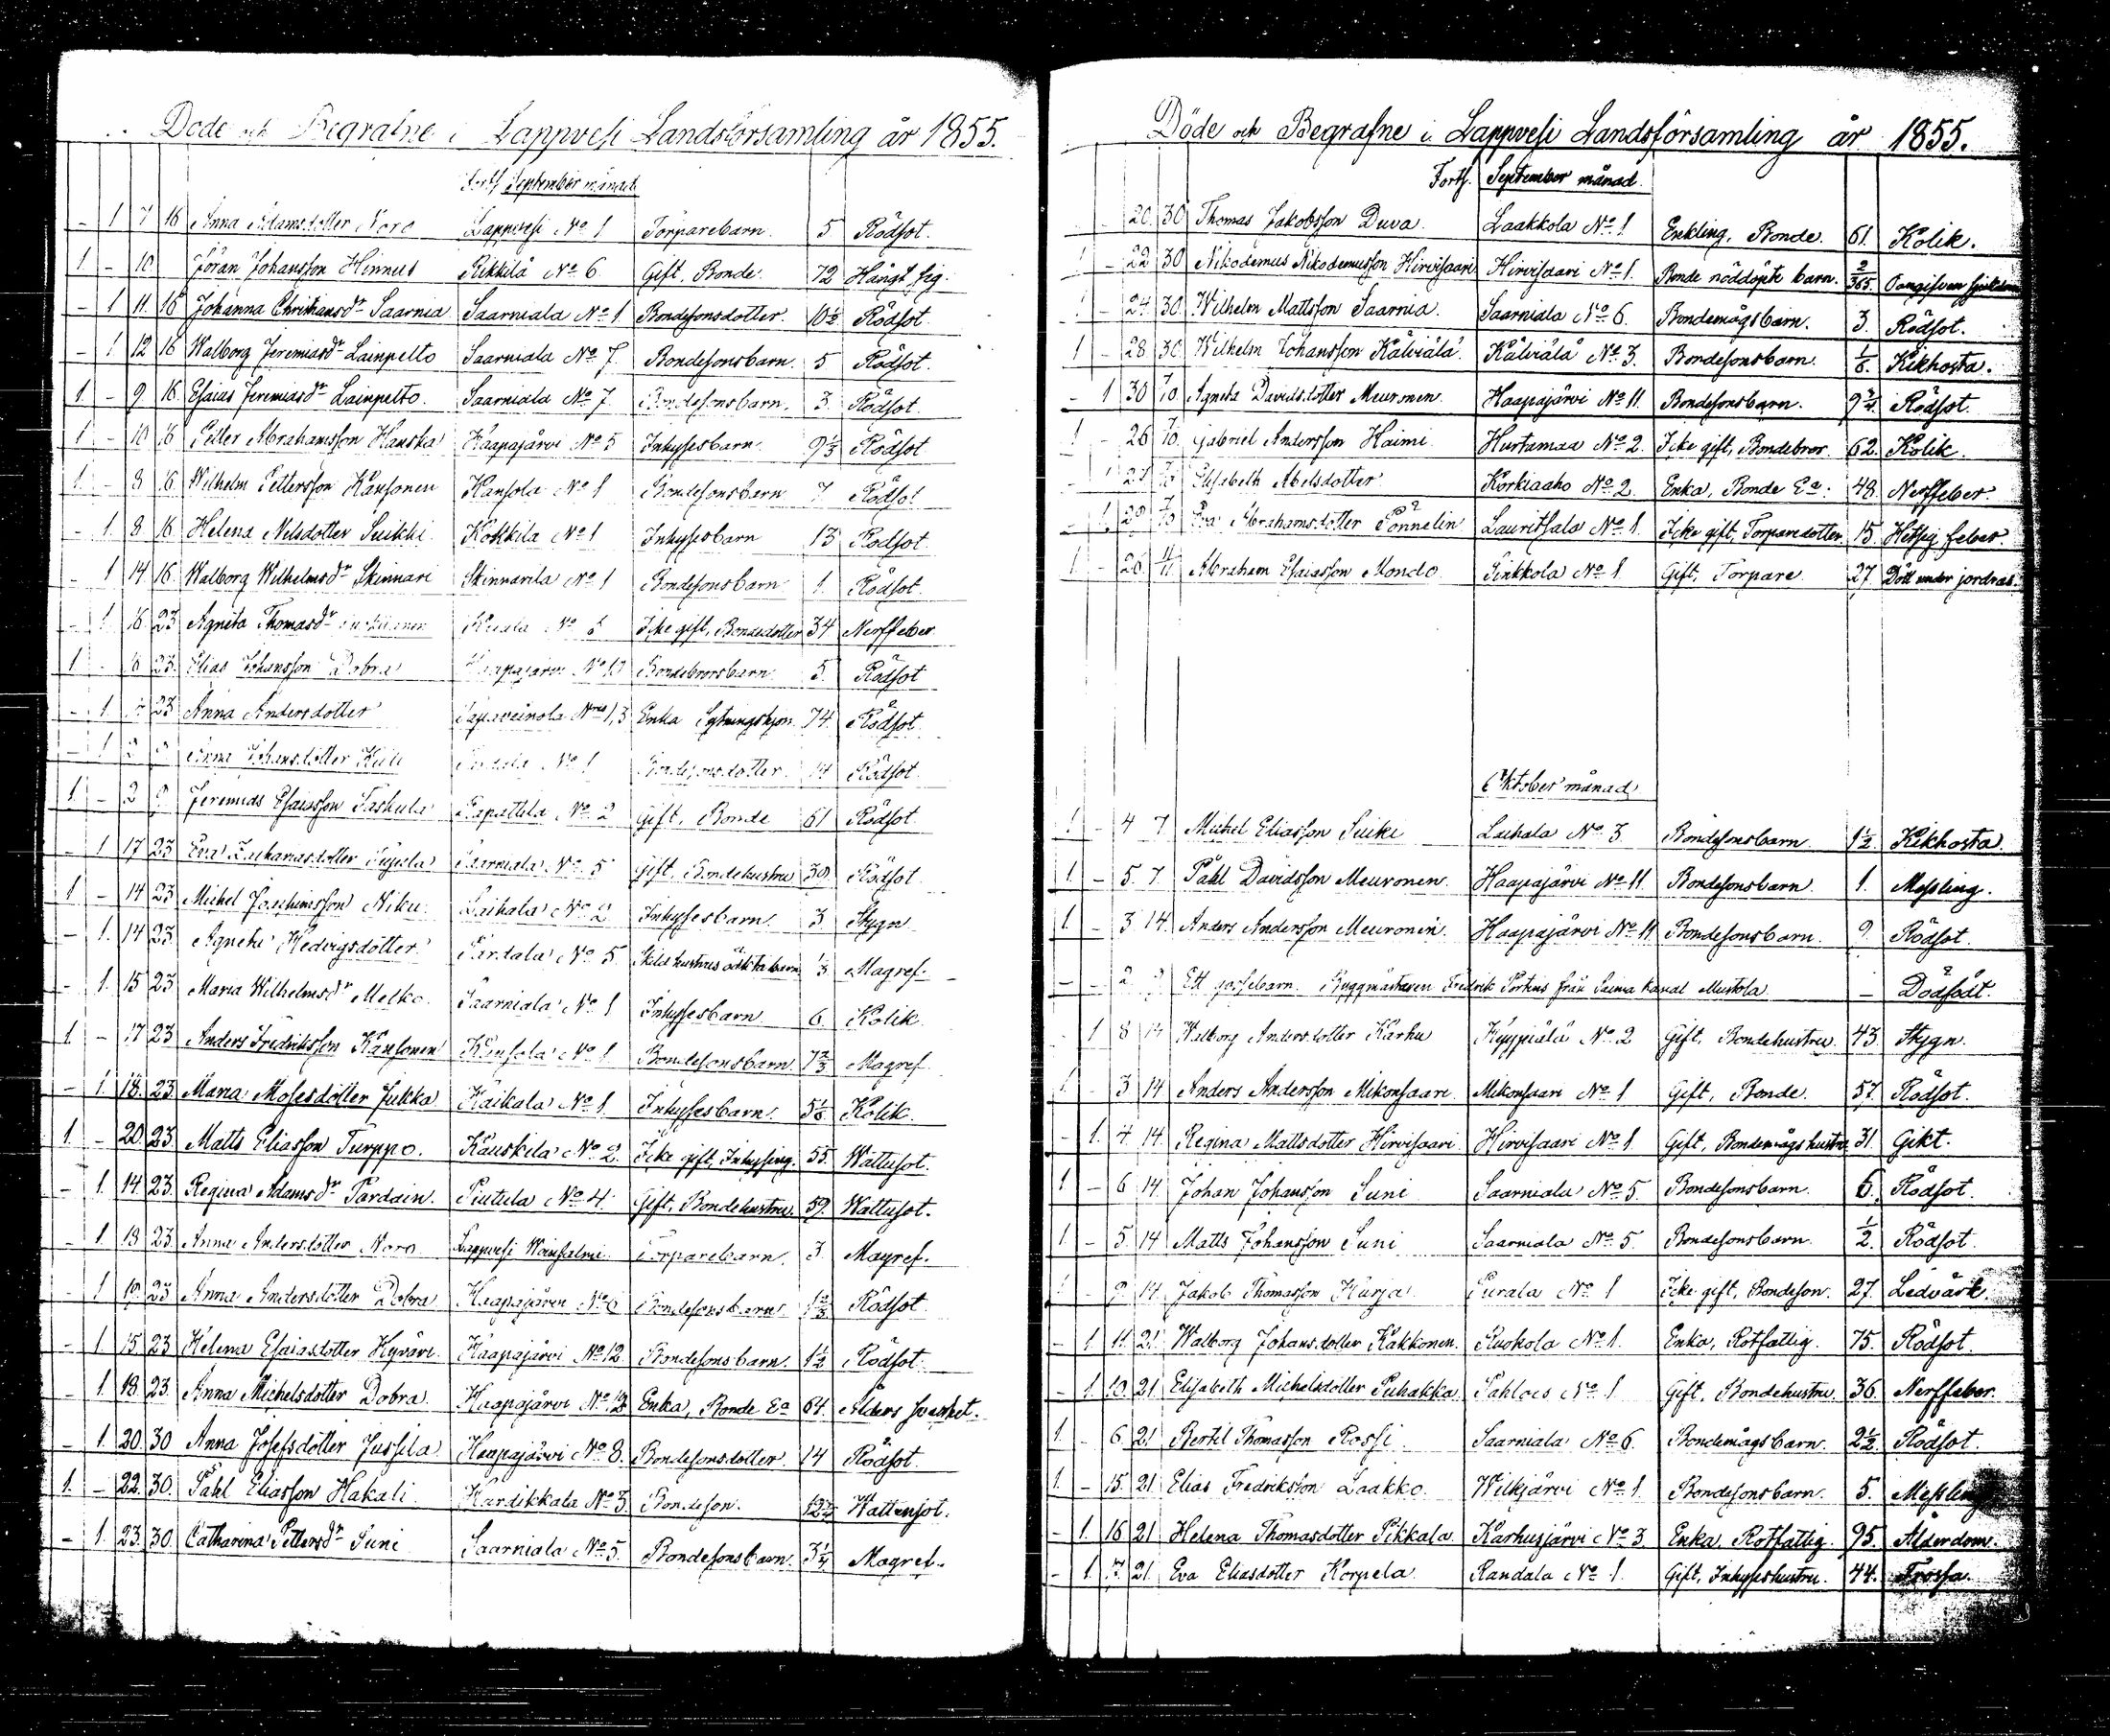 Döde och Begrafne i Lappvesi Landsförsamling år 1855.
Forts. September månad
- 1 7 16 Anna Adamsdotter Noro Lappvesi No 1 Torparebarn 5 Rödsot.
1 - 10 Jöran Johansson Hinnus Rikkilä No 6 Gift, Bonde 72 Hängt sig.
- 1 11 16 Johanna Christiansdr Saarnia Saarniala No 1 Bondesonsdotter 10½ Rödsot.
- 1 12 16 Walborg Jeremiasdr Lainpelto Saarniala No 7. Bondesonsbarn. 5 Rödsot.
1 - 9 16 Esaias Jeremiasdr Lainpelto. Saarniala No 7. Bondesonsbarn. 3 Rödsot.
1 - 10 16 Petter Abrahamsson Hanska Haapajärvi No 5 Inhysesbarn 9⅓ Rödsot
1 - 8 16 Wilhelm Pettersson Kansonen Kansola No 1 Bondesonsbarn 7 Rödsot
- 1 8 16 Helena Nilsdotter Suikki Kokkila No 1 Inhysesbarn 13 Rödsot.
- 1 14 16 Walborg Wilhelmsdr Skinnari Skinnarila No 1 Bondesonsbarn 1. Rödsot.
- 1 16 23 Agneta Thomasdr No Icke gift, Bondedotter 34 Nerffeber
1 - 16 23 Elias Johansson Dobra Haapajärvi No 10 Bondebrorsbarn 5. Rödsot
- 1 23 Anna Andersdotter Nris 1, 3 Enka Sytningshjon 74. Rödsot.
- 1 2 9 Anna Johansdotter No 1 Bondesonsdotter 14 Rödsot
1 - 2 9 Jeremias Esaiasson Taskula Rapattila No 2 Gift, Bonde 61 Rödsot
- 1 17 23 Eva Zachariasdotter Saarniala No 5 Gift, Bondehustru 30 Rödsot
1 - 14 23 Michel Joachimsson Niku Laihala No 2 Inhysesbarn 3 Stygn
- 1. 14 23 Agneta Hedvigsdotter No 5 Skild hustrus oäkta barn ⅓ Magref.
- 1 15 23 Maria Wilhelmsdr Melko Saarniala No 1 Inhysesbarn 6. Kolik
1 - 17 23 Anders Fredriksson Kansonen Kansola No 1 Bondesonsbarn 7⅔ Magref
- 1. 18. 23 Maria Mosesdotter Jukka Kaikala No 1. Inhysesbarn. 5⅙ Kolik.
1. - 20. 23. Matts Eliasson Turppo. Kauskila No 2. Icke gift, Inhysing. 55. Wattusot.
- 1. 14. 23. Regina Adamsdr Pardain. Piutula No 4. Gift, Bondehustru. 59. Wattusot.
- 1. 18 23. Anna Andersdotter Noro Lappvesi Torparebarn. 3. Magref.
- 1 19 23 Anna Andersdotter Dobra Haapajärvi No 6 Bondesonsbarn 1⅔ Rödsot.
- 1. 15 23 Helena Esaiasdotter Hyväri Haapajärvi No 12 Bondesonsbarn. 1½ Rödsot.
- 1. 18. 23. Anna Michelsdotter Dobra. Haapajärvi No 12 Enka, Bonde Ea 64. Ålders svaghet.
- 1. 20. 30 Anna Josefsdotter Jussila Haapajärvi No 8. Bondesonsdotter. 14 Rödsot.
1. - 22. 30. Påhl Eliasson Hakali Kardikkala No 3. Bondeson. Wattusot.
- 1. 23. 30. Catharina Pettersdr Suni Saarniala No 5. Bondesonsbarn. 3¼ Magref.
Döde och Begrafne i Lappvesi Landsförsamling år 1855.
Forts. September månad.
- 20. 30 Thomas Jakobsson Duva Laakkola No 1 Enkling, Bonde. 61. Kolik.
1 - 22 30 Nikodemus Nikodemusson Hirvisaari Hirvisaari No 1. Bonde nöddöpte barn. 2/365. Oangifven sjukdom
1 - 24 30. Wilhelm Mattsson Saarnia. Saarniala No 6. Bondemågsbarn. 3. Rödsot.
1 - 28 30 Wilhelm Johansson Kälviälä Kälviälä No 3. Bondesonsbarn. Kikhosta.
- 1 30 7/10. Agneta Davidsdotter Meuronen. Haapajärvi No 11 Bondesonsbarn. 9¾ Rödsot.
1 - 26 7/10. Gabriel Andersson Haimi. Hurtamaa No 2. Icke gift, Bondebror 62. Kolik.
- 1 21 7/10 Elisabeth Abelsdotter Korkiaaho No 2. Enka, Bonde Ea: 48. Nerffeber.
- 1. 29 7/10 Eva Abrahamsdotter Pönnelin Lauritsala No 1. Icke gift, Torparedotter 15. Hetsig feber.
1 - 26 4/11 Abraham Esaiasson Mondo Sinkkola No 1 Gift, Torpare 27 Död under jordras.
Oktober månad
1 - 4 7 Michel Eliasson Suiki Laihala No 3 Bondesonsbarn 1½. Kikhosta.
1 - 5. 7. Påhl Davidsson Meuronen. Haapajärvi No 11 Bondesonsbarn 1. Messling.
1 - 3 14. Anders Andersson Meuronen. Haapajärvi No 11 Bondesonsbarn. 9 Rödsot.
- - 2 Ett gossebarn. Byggmästaren Fredrik från Saima kanal Mustola. - Dödfödt.
- 1 8 14 Walborg Andersdotter Karhu Hyypiälä No 2 Gift, Bondehustru. 43. Stygn.
1 - 3 14 Anders Andersson Mikonsaari Mikonsaari No 1 Gift, Bonde. 57. Rödsot.
- 1. 4. 14. Regina Mattsdotter Hirvisaari Hirvisaari No 1 Gift, Bondemågs hustru 31. Gikt.
1 - 6 14. Johan Johansson Suni Saarniala No 5. Bondesonsbarn. 6. Rödsot.
1. - 5. 14 Matts Johansson Suni Saarniala No 5. Bondesonsbarn ½. Rödsot.
1 - 9 14. Jakob Thomasson Hurja Purala No 1 Icke gift, Bondeson. 27. Ledvärk.
- 1 11. 21. Walborg Johansdotter Kakkonen. Ruokola No 1. Enka, Rotfattig. 75. Rödsot.
- 1 10 21. Elisabeth Michelsdotter Puhakka. Pahlois No 1 Gift, Bondehustru. 36. Nerffeber.
1. - 6. 21. Bertil Thomasson Rossi. Saarniala No 6. Bondemågsbarn. 2½. Rödsot.
1. - 15. 21. Elias Fredriksson Laakko. Wilkjärvi No 1. Bondesonsbarn. 5. Messling
- 1. 16 21. Helena Thomasdotter Pikkala. Karhusjärvi No 3. Enka, Rotfattig. 95. Ålderdom.
- 1. 17. 21. Eva Eliasdotter Korpela. Randala No 1. Gift, Inhyseshustru. 44. Frossa.